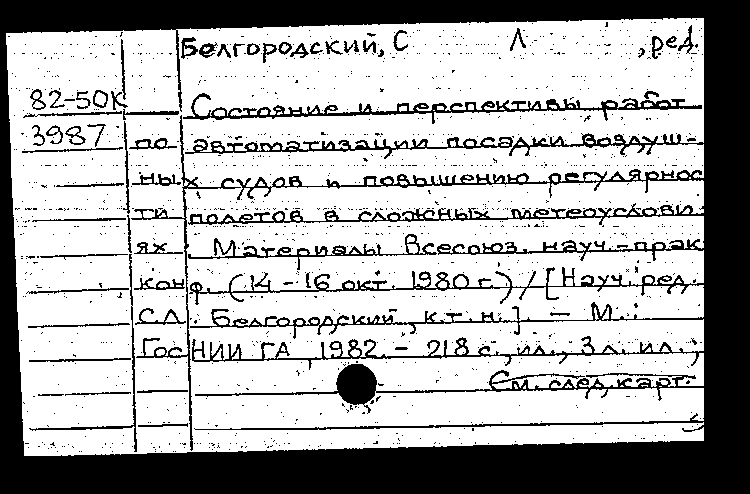 Белгородский, С Л , ред.
82-50К Состояние и перспективы работ
3987 по автоматизации посадки воздуш-
ных судов и повышению регулярнос
ти полетов в сложных метеоуслови
ях . Материалы Всесоюз. науч.-прак
конф. (14-16 окт. 1980 г.) / [Науч. ред.
С.Л. Белгородский, к.т.н.]. - М.:
ГосНИИ ГА, 1982. - 218 с., ил., 3 л. ил.;
См. след. карт.